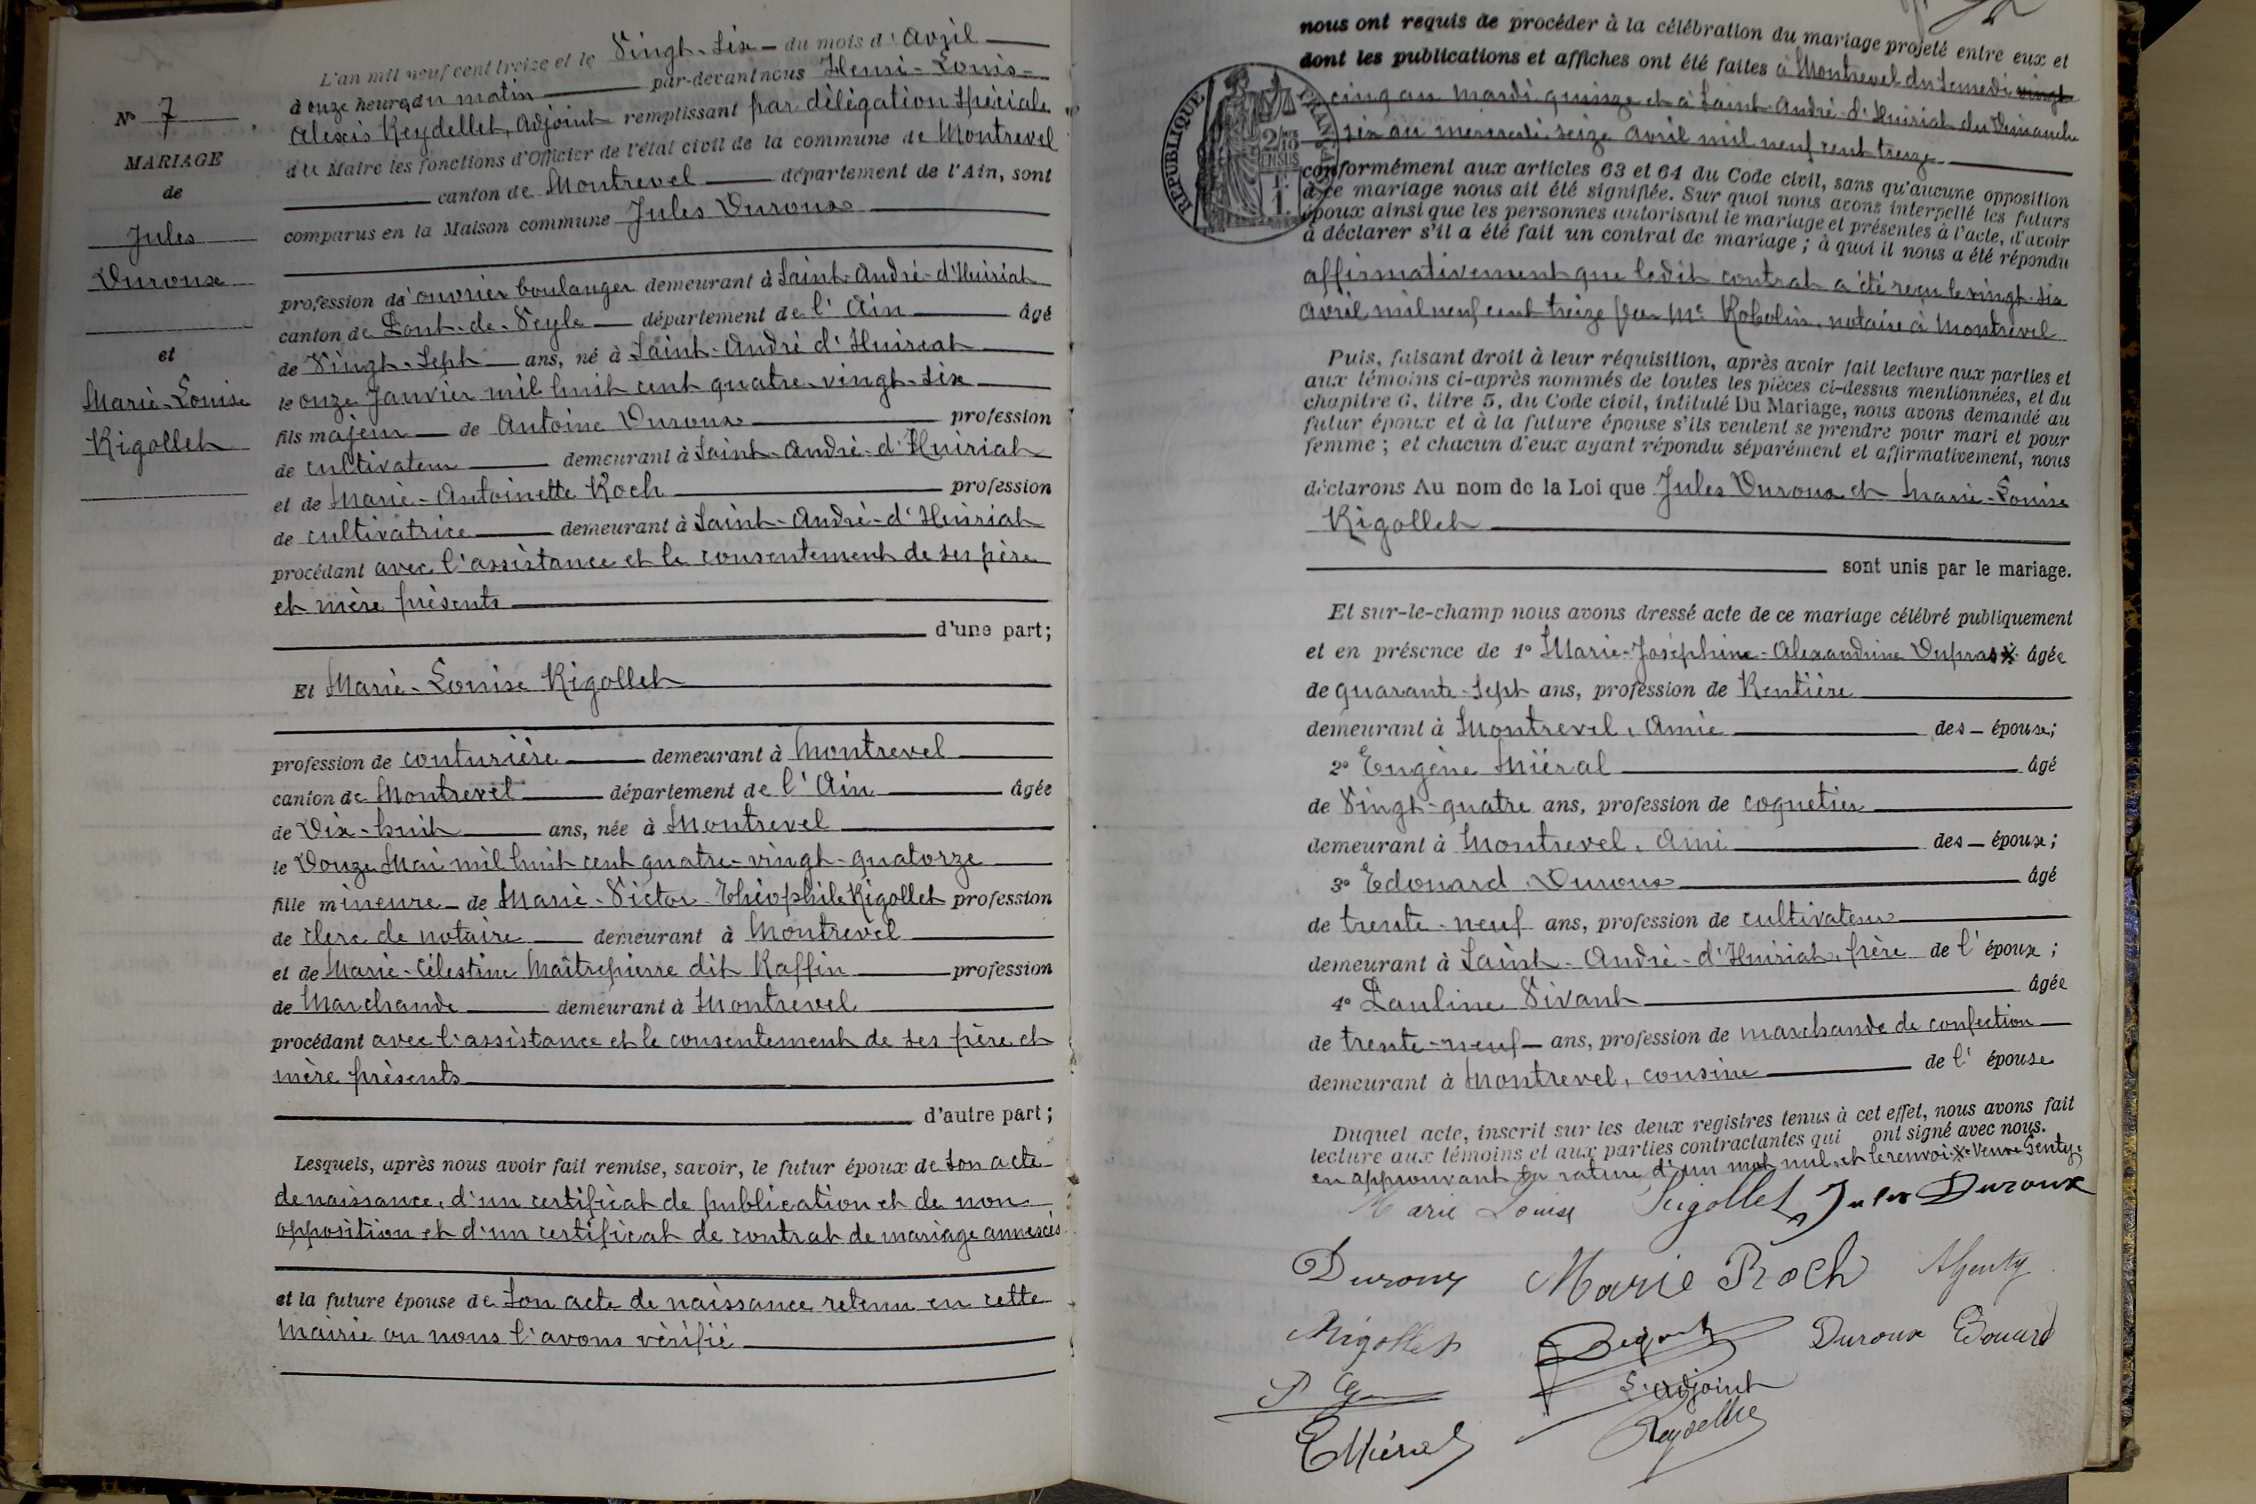 L'an mil neuf cent treize et le Vingt-six du mois d'Avril
à onze heures du matin par-devant nous Henri-Louis-
Alexis Reydellet, Adjoint remplissant par délégation spéciale
du Maire les fonctions d'Officier de l'état civil de la commune de Montrevel
canton de Montrevel département de l'Ain, sont
comparus en la Maison commune Jules Duroux
profession d'ouvrier boulanger demeurant à Saint-André-d'Huiriat
canton de Pont-de-Veyle département de l'Ain âgé
de Vingt-sept ans, né à Saint-André d'Huiriat
le onze Janvier mil huit cent quatre-vingt-six
fils majeur de Antoine Duroux profession
de cultivateur demeurant à Saint-André-d'Huiriat
et de Marie-Antoinette Roch profession
de cultivatrice demeurant à Saint-André-d'Huiriat
procédant avec l'assistance et le consentement de ses père
et mère présents
d'une part;
Et Marie-Louise Rigollet
profession de couturière demeurant à Montrevel
canton de Montrevel département de l'Ain âgée
de Dix-huit ans, née à Montrevel
le Douze Mai mil huit cent quatre-vingt-quatorze
fille mineure de Marie-Victor-Théophile Rigollet profession
de clerc de notaire demeurant à Montrevel
et de Marie-Célestine Maîtrepierre dit Raffin profession
de Marchande demeurant à Montrevel
procédant avec l'assistance et le consentement de ses père et
mère présents
d'autre part;
Lesquels, après nous avoir fait remise, savoir, le futur époux de son acte
de naissance, d'un certificat de publication et de non
opposition et d'un certificat de contrat de mariage annexés
et la future épouse de son acte de naissance retenu en cette
Mairie ou nous l'avons vérifié
No 7
MARIAGE
de
Jules
Duroux
et
Marie-Louise
Rigollet
nous ont requis de procéder à la célébration du mariage projeté entre eux et
dont les publications et affiches ont été faites à Montrevel du samedi vingt
cinq au mardi quinze et à Saint-André-d'Huiriat du Dimanche
six au mercredi seize avril mil neuf cent treize
conformément aux articles 63 et 64 du Code civil, sans qu'aucune opposition
à ce mariage nous ait été signifiée. Sur quoi nous avons interpellé les futurs
époux ainsi que les personnes autorisant le mariage et présentes à l'acte, d'avoir
à déclarer s'il a été fait un contrat de mariage; à quoi il nous a été répondu
affirmativement que ledit contrat a été reçu le vingt-six
avril mil neuf cent treize par Me Robelin, notaire à Montrevel
Puis, faisant droit à leur réquisition, après avoir fait lecture aux parties et
aux témoins ci-après nommés de toutes les pièces ci-dessus mentionnées, et du
chapitre 6, titre 5, du Code civil, intitulé Du Mariage, nous avons demandé au
futur époux et à la future épouse s'ils veulent se prendre pour mari et pour
femme; et chacun d'eux ayant répondu séparément et affirmativement, nous
déclarons Au nom de la Loi que Jules Duroux et Marie-Louise
Rigollet
sont unis par le mariage.
Et sur-le-champ nous avons dressé acte de ce mariage célébré publiquement
et en présence de 1° Marie-Joséphine-Alexandrine Dupras X âgée
de quarante-sept ans, profession de Rentière
demeurant à Montrevel, Amie des époux;
2° Eugène Miéral âgé
de Vingt-quatre ans, profession de coquetier
demeurant à Montrevel, Ami des époux;
3° Edouard Duroux âgé
de trente-neuf ans, profession de cultivateur
demeurant à Saint-André-d'Huiriat, frère de l'époux;
4° Pauline Vivant âgée
de trente-neuf ans, profession de marchande de confection
demeurant à Montrevel, cousine de l'épouse
Duquel acte, inscrit sur les deux registres tenus à cet effet, nous avons fait
lecture aux témoins et aux parties contractantes qui ont signé avec nous.
en approuvant la rature d'un mot nul, et le renvoi X Veuve Genty.
Marie Louise Rigollet Jules Duroux
Duroux Marie Roch AGenty
Rigollet Duroux Edouard
L'adjoint
EMiéral Reydellet
RÉPUBLIQUE FRANÇAISE